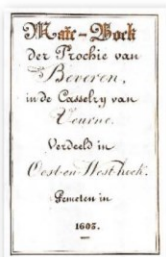 Mate-Boek
der Prochie van
Beveren,
in de Casselry van
Veurne.
Verdeeld in
Oost en West hoek.
Gemeten in
1693.